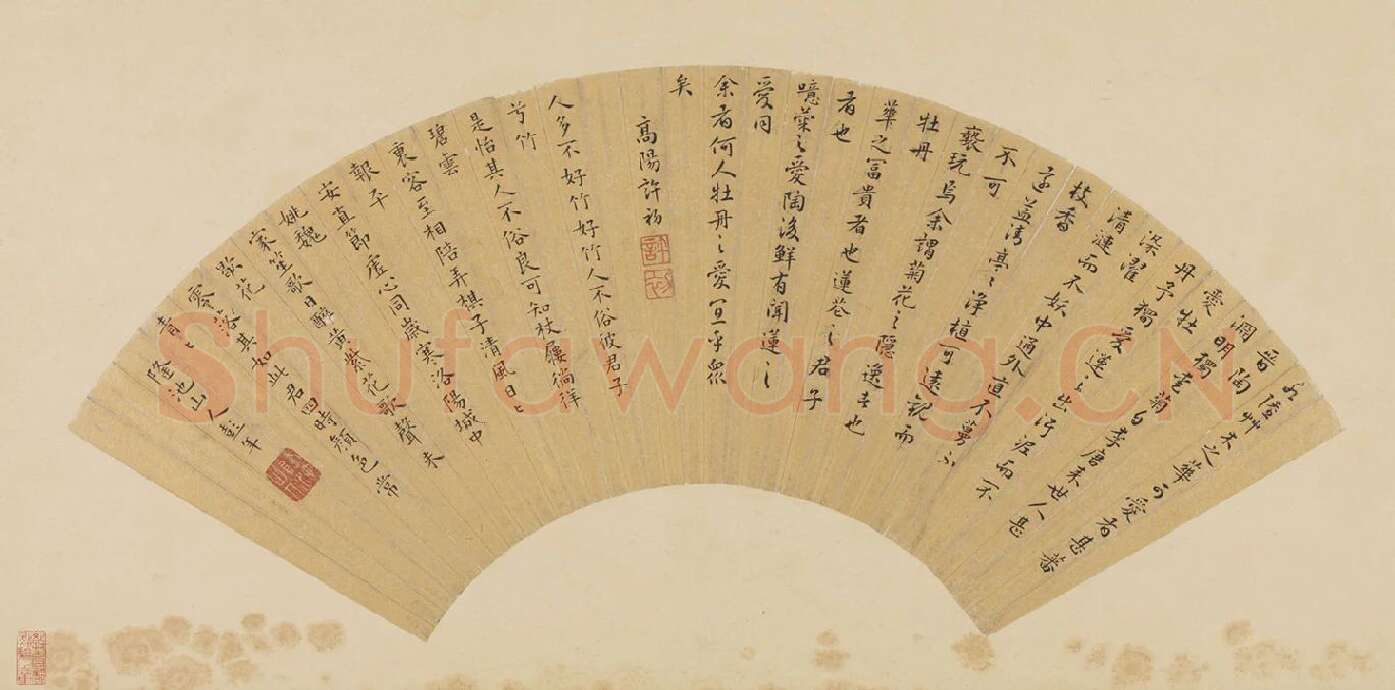 水陸艸木之華可愛者甚蕃
晉陶
淵明獨愛菊自李唐来世人甚
愛牡
丹予獨愛蓮之出汙泥而不
染濯
清漣而不妖中通外直不蔓不
枝香
遠益清亭々淨植可遠觀而
不可
褻玩焉余謂菊花之隱逸者也
牡丹
華之冨貴者也蓮花之君子
者也
噫菊之愛陶後鮮有聞蓮之
愛同
余者何人牡丹之愛宜乎衆
矣
高陽許初
許初
人多不好竹好竹人不俗彼君子
兮竹
是怡其人不俗良可知杖屨徜徉
碧雲
裏客至相陪弄棋子清風日々
報平
安直節虛心同歲寒洛陽城中
姚魏
家笙歌日醉黄紫花歌聲未
歇花
零落其如此君四時顏色常
青々
隆池山人彭年
Shufawang.CN